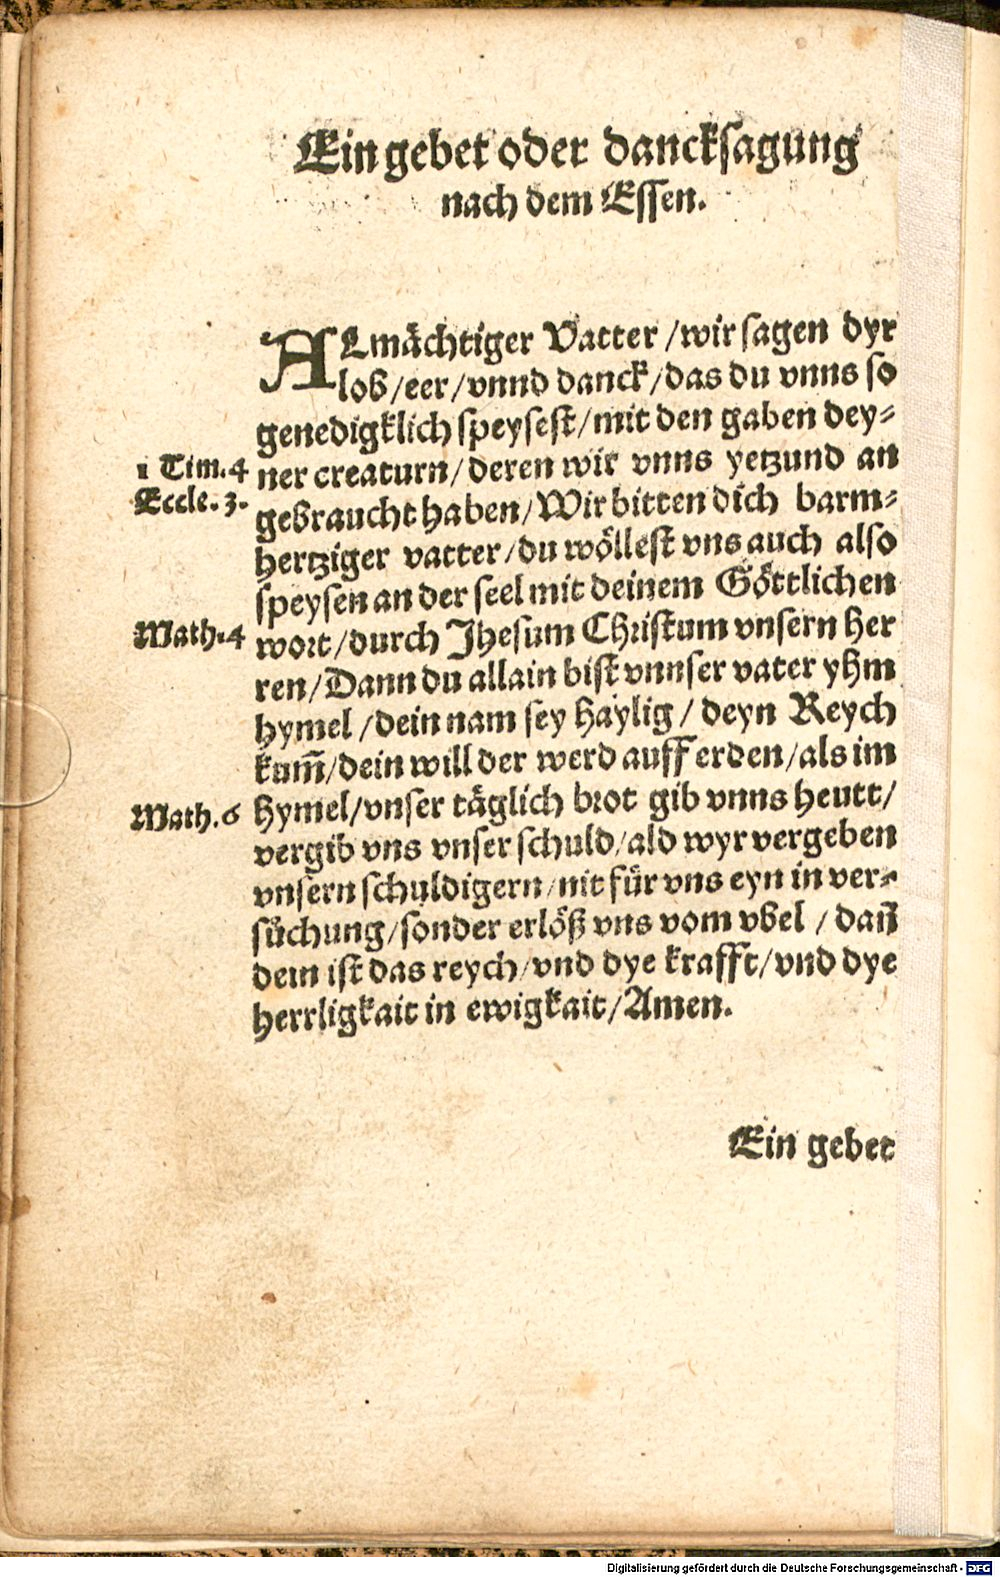 Ein gebet oder dancksagung
nach dem Essen.
ALmächtiger Vatter / wir sagen dyr
lob / eer / vnnd danck / das du vnns so
genedigklich speysest / mit den gaben dey-
1 Tim. 4
ner creaturn / deren wir vnns yetzund an
Eccle. 3.
gebraucht haben / Wir bitten dich barm-
hertziger vatter / du wöllest vns auch also
speysen an der seel mit deinem Göttlichen
Math. 4
wort / durch Jhesum Christum vnsern Her
ren / Dann du allain bist vnnser vater yhm
hymel / dein nam sey haylig / deyn Reych
kum̃ / dein will der werd auff erden / als im
Math. 6
hymel / vnser täglich brot gib vnns heutt /
vergib vns vnser schuld / ald wyr vergeben
vnsern schuldigern / nit für vns eyn in ver-
sůchung / sonder erlöß vns vom vbel / dañ
dein ist das reych / vnd dye krafft / vnd dye
herrligkait in ewigkait / Amen.
Ein gebet
Digitalisierung gefördert durch die Deutsche Forschungsgemeinschaft - DFG